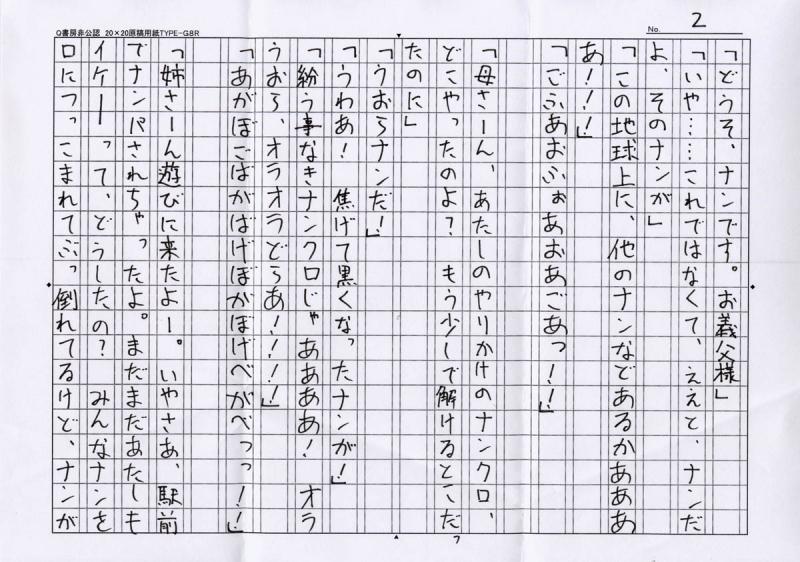 Q書房非公認 20×20原稿用紙TYPE-G8R
No. 2
「どうぞ、ナンです。お義父様」
「いや……これではなくて、ええと、ナンだ
よ、そのナンが」
「この地球上に、他のナンなどあるかあああ
あ！！！」
「ごふあおふぉあおあごあっ！！」
「母さーん、あたしのやりかけのナンクロ、
どこやったのよ？　もう少しで解けるとこだっ
たのに」
「うおらナンだ！」
「うわあ！　焦げて黒くなったナンが！」
「紛う事なきナンクロじゃああああ！　オラ
うおら、オラオラどらあ！！！！」
「あがぼごばがばげぼがぼげべがべっっ！！」
「姉さーん遊びに来たよー。いやさあ、駅前
でナンパされちゃったよ。まだまだあたしも
イケーって、どうしたの？　みんなナンを
口につっこまれてぶっ倒れてるけど、ナンが